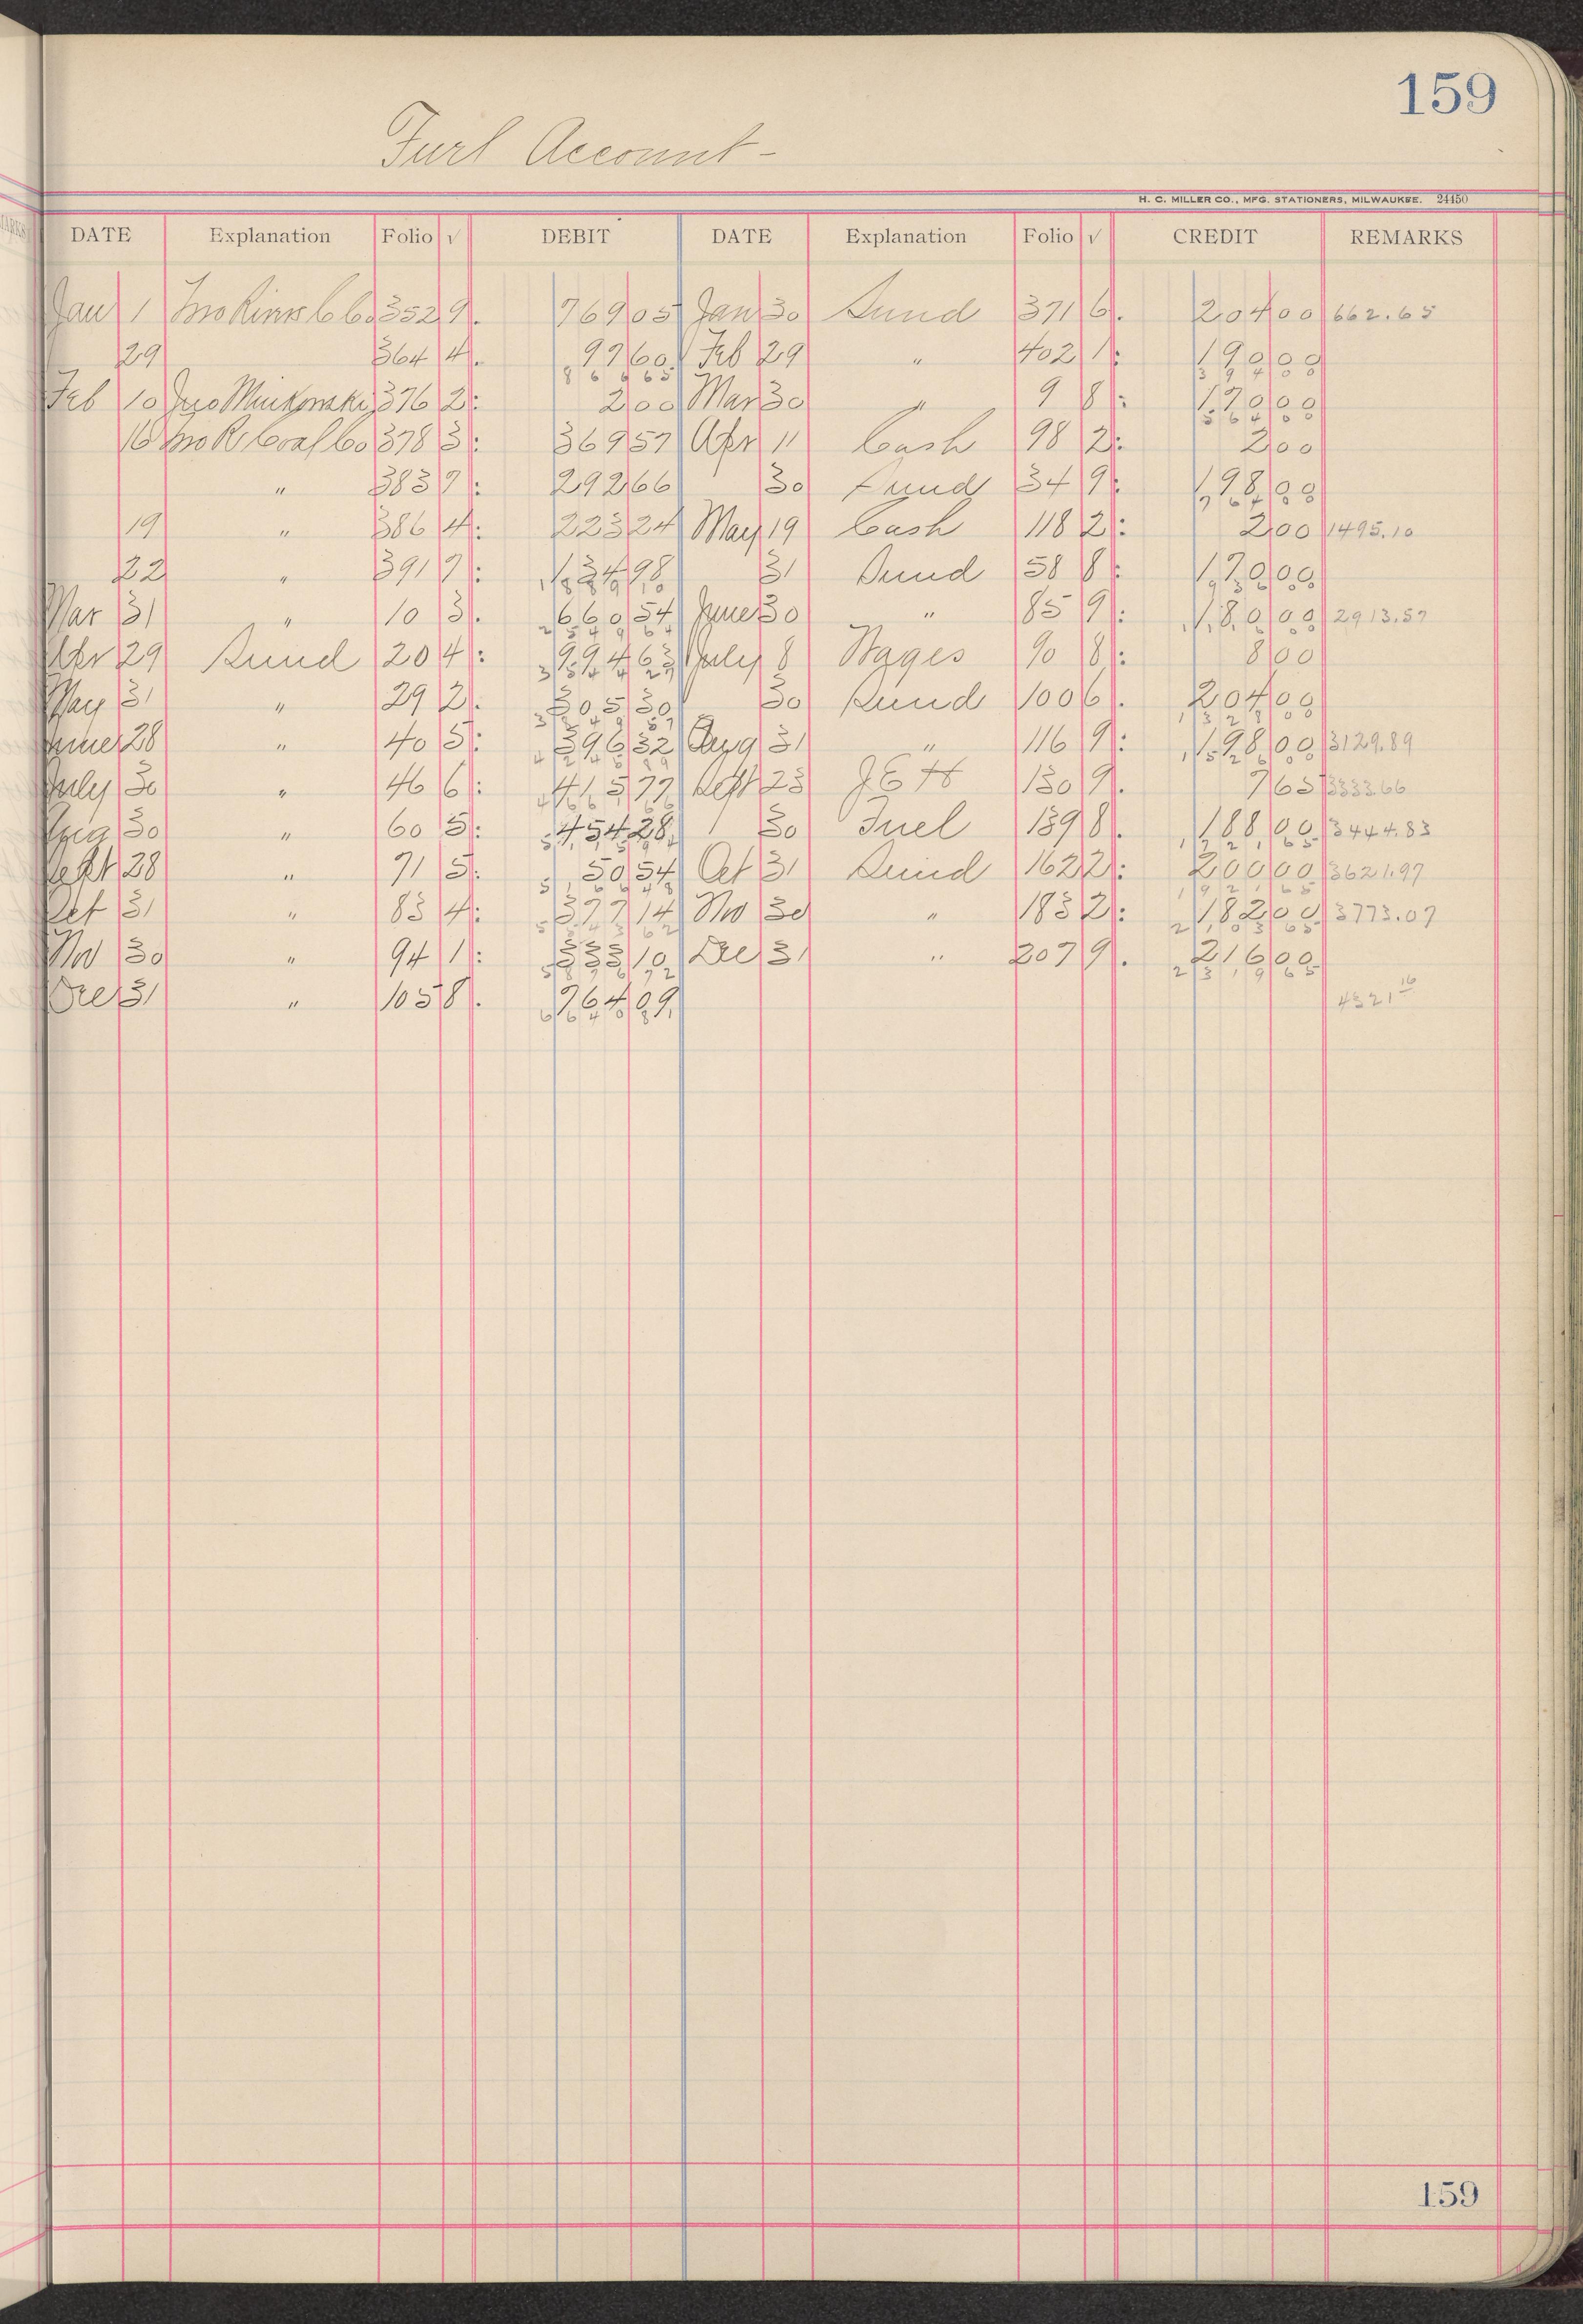 159
Fuel Account -
H. C. MILLER CO., MFG. STATIONERS, MILWAUKEE. 24450
DATE Explanation Folio √ DEBIT DATE Explanation Folio √ CREDIT REMARKS
Jan 1 3529. 769 05 Jan 30 Sund 3716. 204 00 662.65
29 3644. 97 60 Feb 29 " 4021: 190 00
866 65 394 00
Feb 10 3762: 2 00 Mar 30 " 98: 170 00
564 00
16 Coal Co 3783: 369 57 Apr 11 Cash 982: 2 00
" 3837: 292 66 30 Sund 349: 198 00
764 00
19 " 3864: 223 24 May 19 Cash 1182: 2 00 1495.10
22 " 3917: 134 98 31 Sund 588: 170 00
Mar 31 " 103. 660 54 June 30 " 859: 180 00 2913.57
Apr 29 Sund 204: 994 63 July 8 Wages 908: 8 00
May 31 " 292. 305 30 30 Sund 1006. 204 00
June 28 " 405: 396 32 Aug 31 " 1169: 198 00 3129.89
July 30 " 466: 415 77 Sept 23 1309. 7 65 3333.66
Aug 30 " 605: 454 28 30 Fuel 1398. 188 00 3444.83
Sept 28 " 715: 50 54 Oct 31 Sund 1622: 200 00 3621.97
1921 65
Oct 31 " 834: 377 14 No 30 " 1832: 182 00 3773.07
2103 65
Nov 30 " 941: 333 10 Dec 31 " 2079. 216 00
2319 65
Dec 31 " 1058. 764 09
4321 16
159